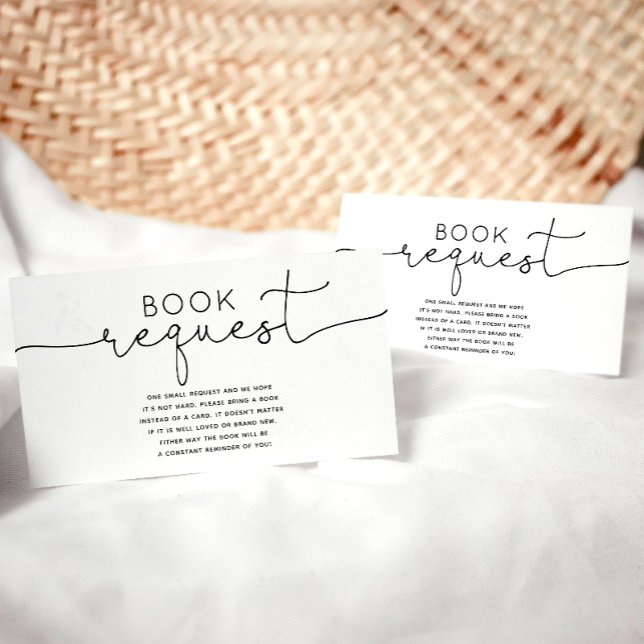 BOOK
request
ONE SMALL REQUEST AND WE HOPE
IT'S NOT HARD, PLEASE BRING A BOOK
INSTEAD OF A CARD. IT DOESN'T MATTER
IF IT IS WELL LOVED OR BRAND NEW,
EITHER WAY THE BOOK WILL BE
A CONSTANT REMINDER OF YOU!
BOOK
request
ONE SMALL REQUEST AND WE HOPE
IT'S NOT HARD, PLEASE BRING A BOOK
INSTEAD OF A CARD. IT DOESN'T MATTER
IF IT IS WELL LOVED OR BRAND NEW,
EITHER WAY THE BOOK WILL BE
A CONSTANT REMINDER OF YOU!